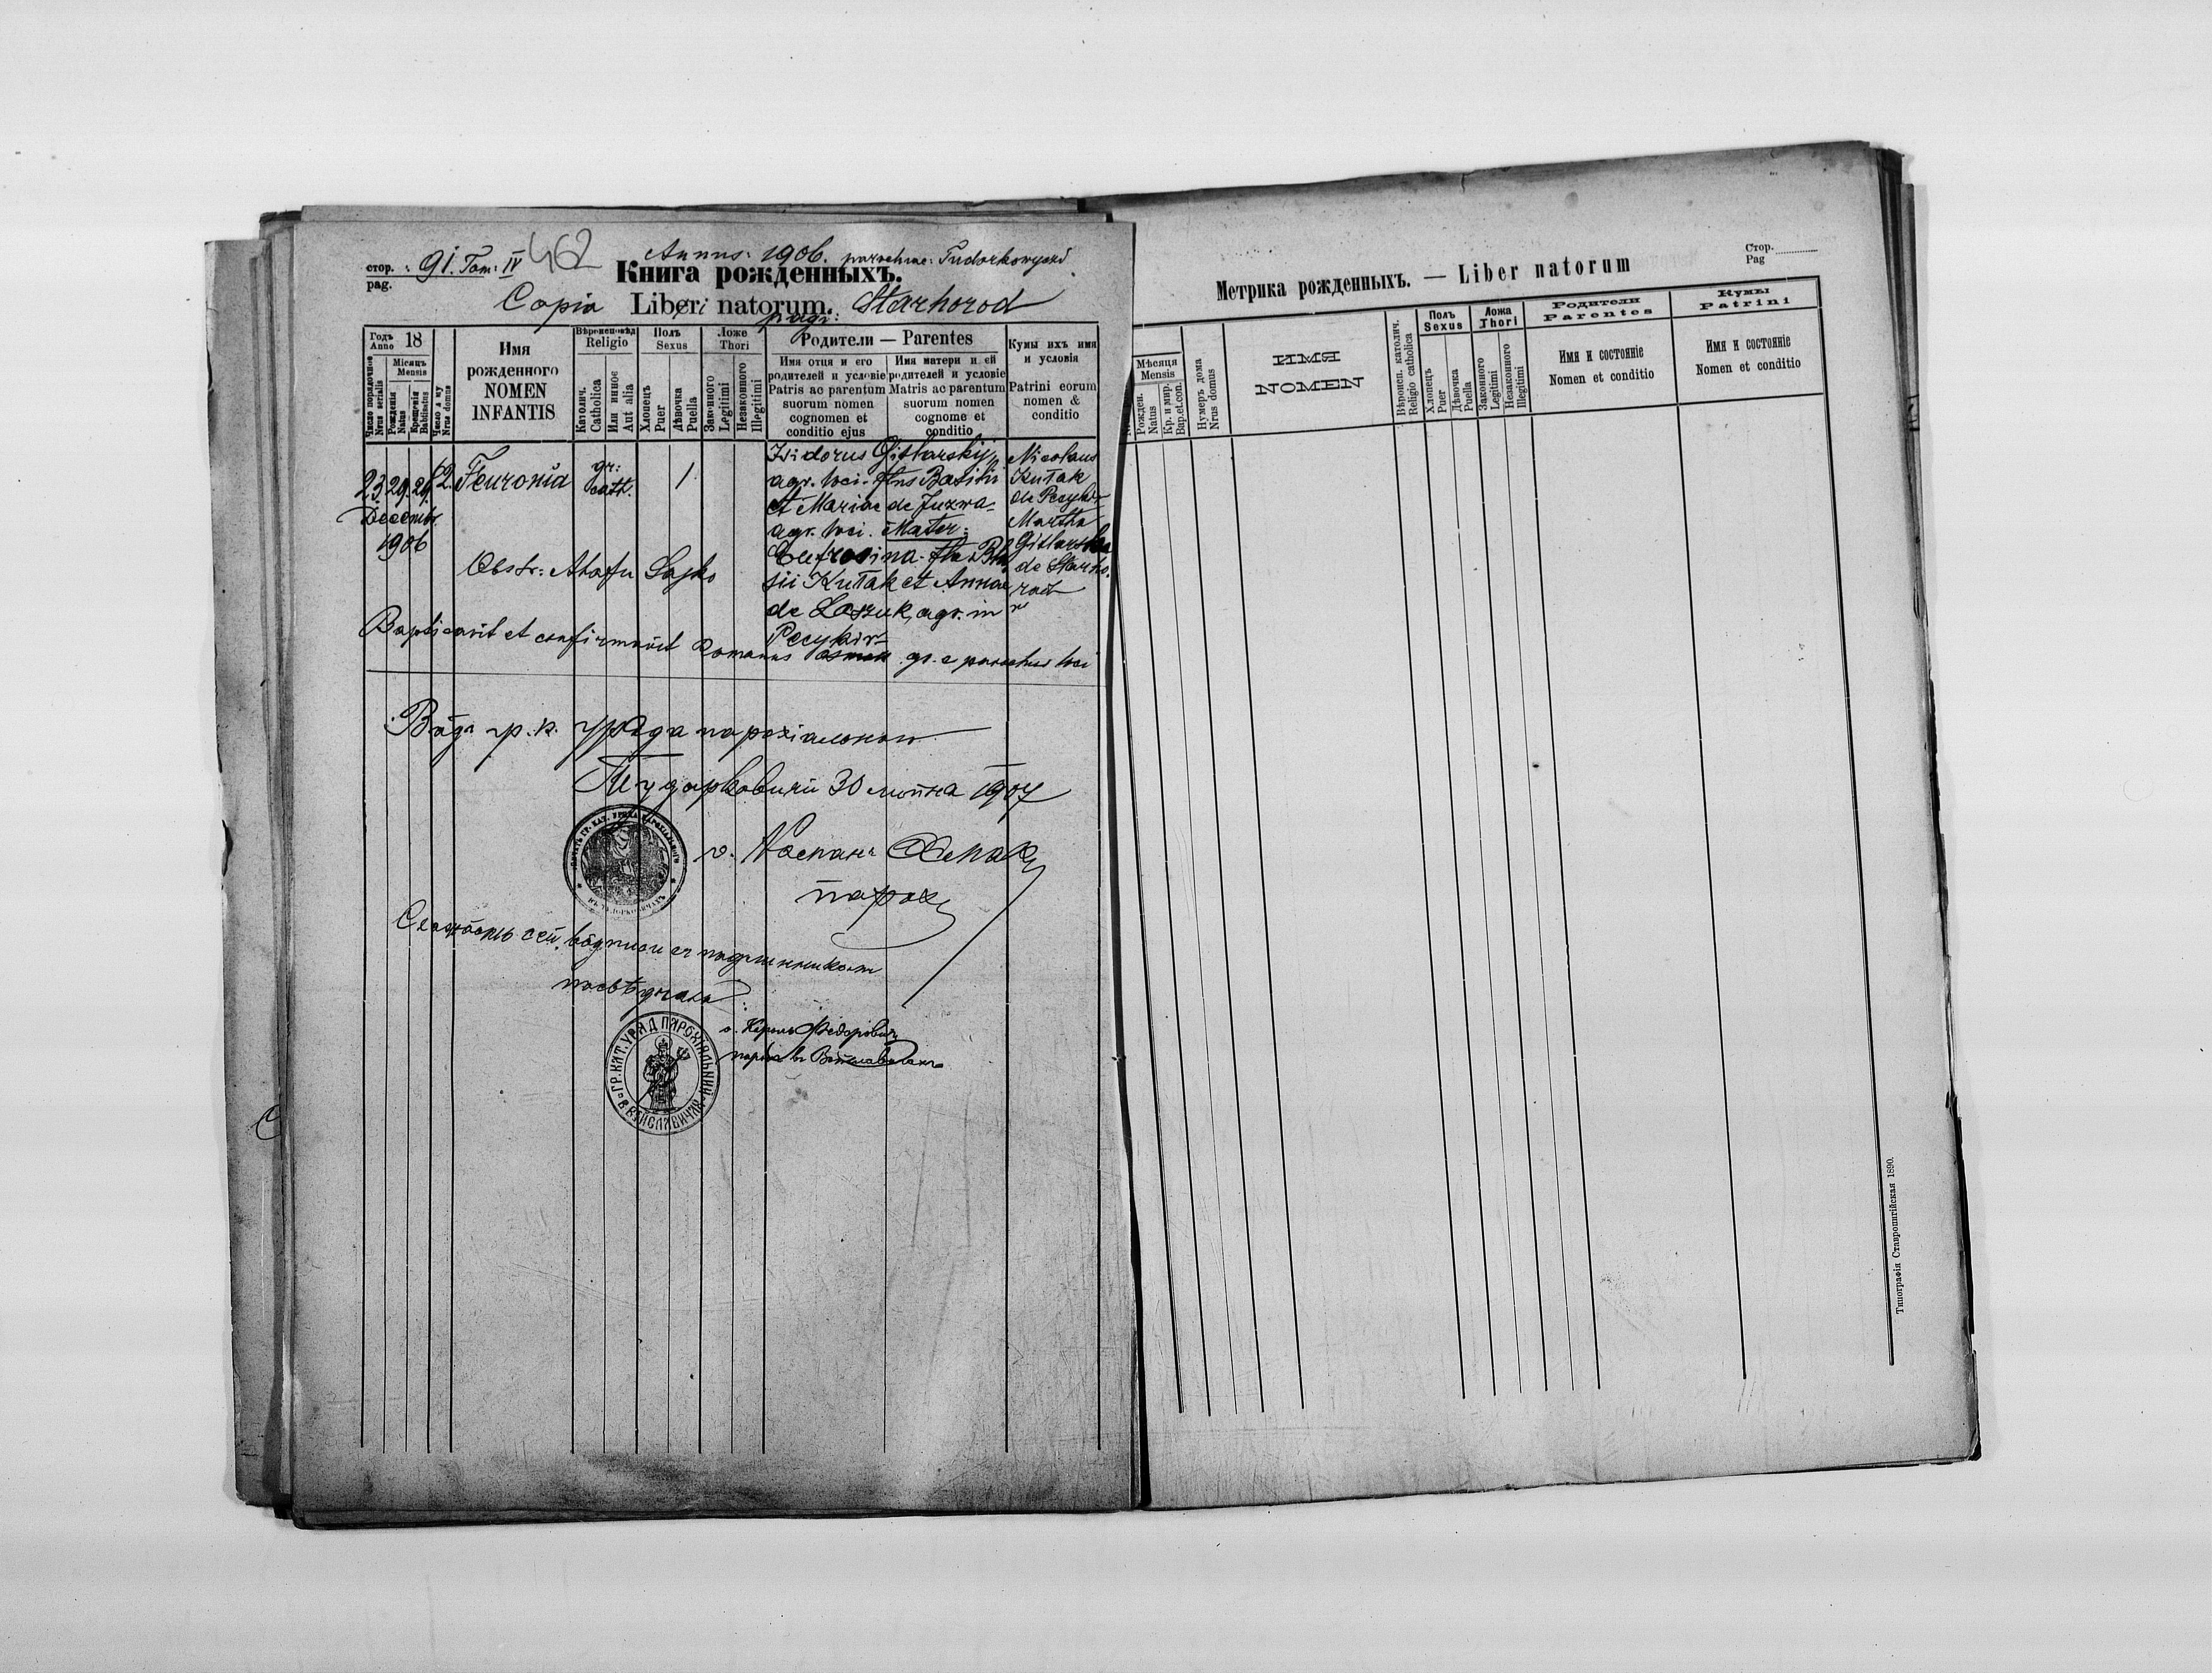 стор. : 91. Tom: IV 462 Annus: 1906. parochiae: Tudorkowyczi
pag.
Книга рожденныхъ.
Copia Libri natorum. pagi: Starhorod
Годъ Anno 18
Число порядковое Nrus serialis
Місяць Mensis
Рожденія Natus
Крещенія Batisatus
Число дому Nrus domus
Имя
рожденного
NOMEN
INFANTIS
Вѣроисповѣд Religio
Католич. Catholica
Или инное Aut alia
Полъ Sexus
Хлопецъ Puer
Дѣвочка Puella
Ложе Thori
Законного Legitimi
Незаконного Illegitimi
Родители — Parentes
Имя отця и его
родителей и условіе
Patris ac parentum
suorum nomen
cognomen et
conditio ejus
Имя матери и ей
родителей и условіе
Matris ac parentum
suorum nomen
cognome et
conditio
Кумы ихъ имя
и условія
Patrini eorum
nomen &
conditio
23. 29. 29. 62. Feuronia gr: cath. 1
Decembr.
1906
Isidorus Gitlarskij,
agr. loci. flius Basilii
et Mariae de Juzwa
agr. loci. Mater:
Eufrosina fla Ba
sii Kułak et Annae
de Laszuk, agr. in
Pecyhir
Nicolaus
Kułak
de Pecyhir
Martha
Gitlarska
de Starho
rod
Obstr: Ahafia Sajko
Baptisavit et confirmavit Romanus gr. c parochus loci
Вôдъ гр. к. уряда парохіяльного
Тудорковичи 30 липня 1907
о. Романъ
парох
Схожôсть сей вôдписи съ подлинникомъ
посвѣдчаю
о. Федорович
парох в
ГР. КАТ. УРЯД ПАРОХІЯЛЬНИЙ В ВОИСЛАВИЧАХ
Метрика рожденныхъ. — Liber natorum
Стор.
Pag
Мѣсяця Mensis
Рожден. Natus
Кр. и мир. Bap.et.con.
Нумеръ дома Nrus domus
ИМЯ
NOMEN
Вѣроисп. католич. Religio catholica
Полъ Sexus
Хлопецъ Puer
Дѣвочка Puella
Ложа Thori
Законного Legitimi
Незаконного Illegitimi
Родители
Parentes
Имя и состояніе
Nomen et conditio
Кумы
Patrini
Имя и состояніе
Nomen et conditio
Типографія Ставропигійская 1890.